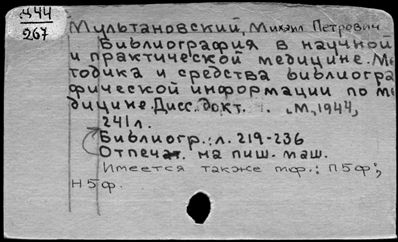 Д44
267
Мультановский, Михаил Петрович
Библиография в научной
и практической медицине. Ме
тодика и средства библиогра
фической информации по ме
дицине. Дисс. докт. . М., 1944,
241 л.
Библиогр.: л. 219-236
Отпечат. на пиш. маш.
Имеется также тф.: П5ф;
Н5ф.